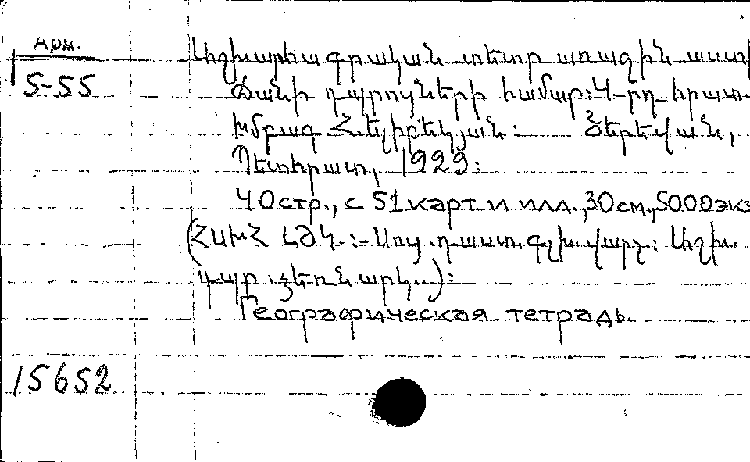 Арм.
Տ-55
Աշխարհագրական տետր առաջին աստի
ճանի դպրոցների համար: 4-րդ հրատ.
Խմբագ. Յերեվան,
Պետհրատ, 1929:
40 стр., с 51 карт и илл., 30 см., 5000 экз
(ՀՍԽՀ ԼԺԿ.:-Սոց. դաստ. գլխ. վարչ: Աշխ.
ձեռնարկ.):
Географическая тетрадь
15652